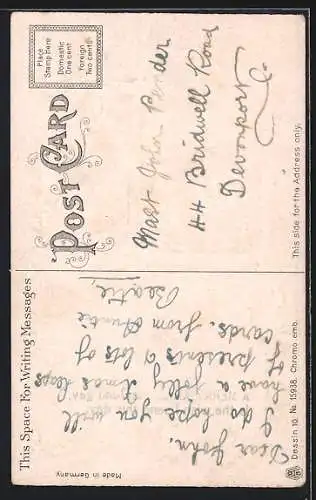 This Space For Writing Messages
POST CARD
Place
Stamp Here
Domestic
One cent
Foreign
Two cents
Dear John.
I do hope you will
have a jolly Xmas heaps
of presents & lots of
cards. from Auntie
Beatie,
Mast John
44 Bridwell Road
Devonport
Made in Germany
Dessin 10. No. 15938. Chromo emb.
This side for the Address only.